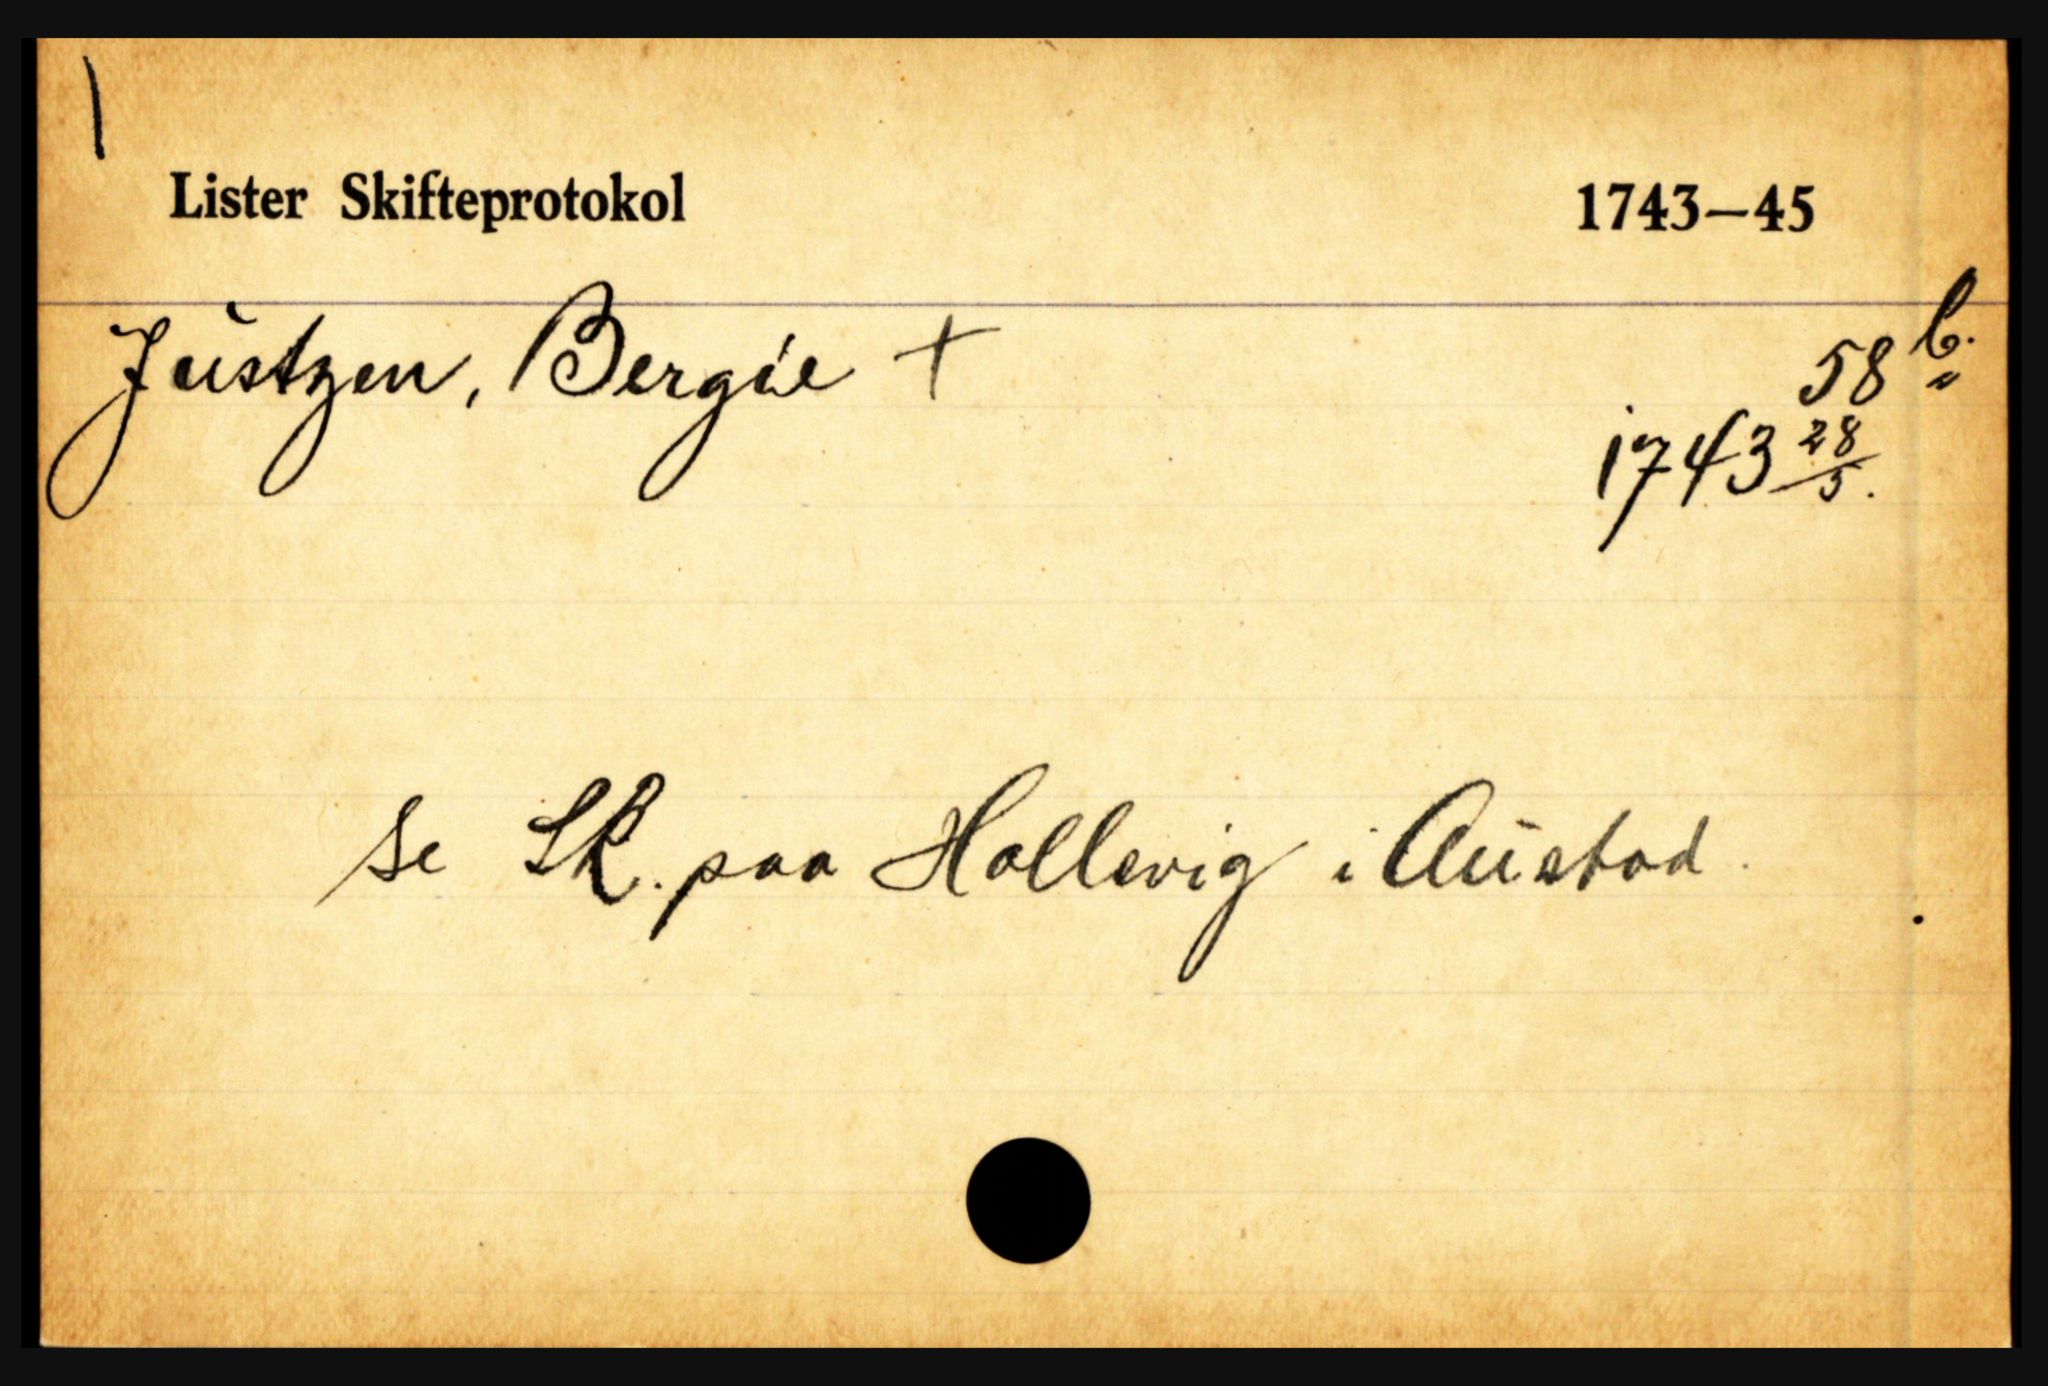 Lister Skifteprotokol 1743—45
Justzen, Bergie + 58 b.
1743 28/5.
Se SK. paa Hollevig i Austad.